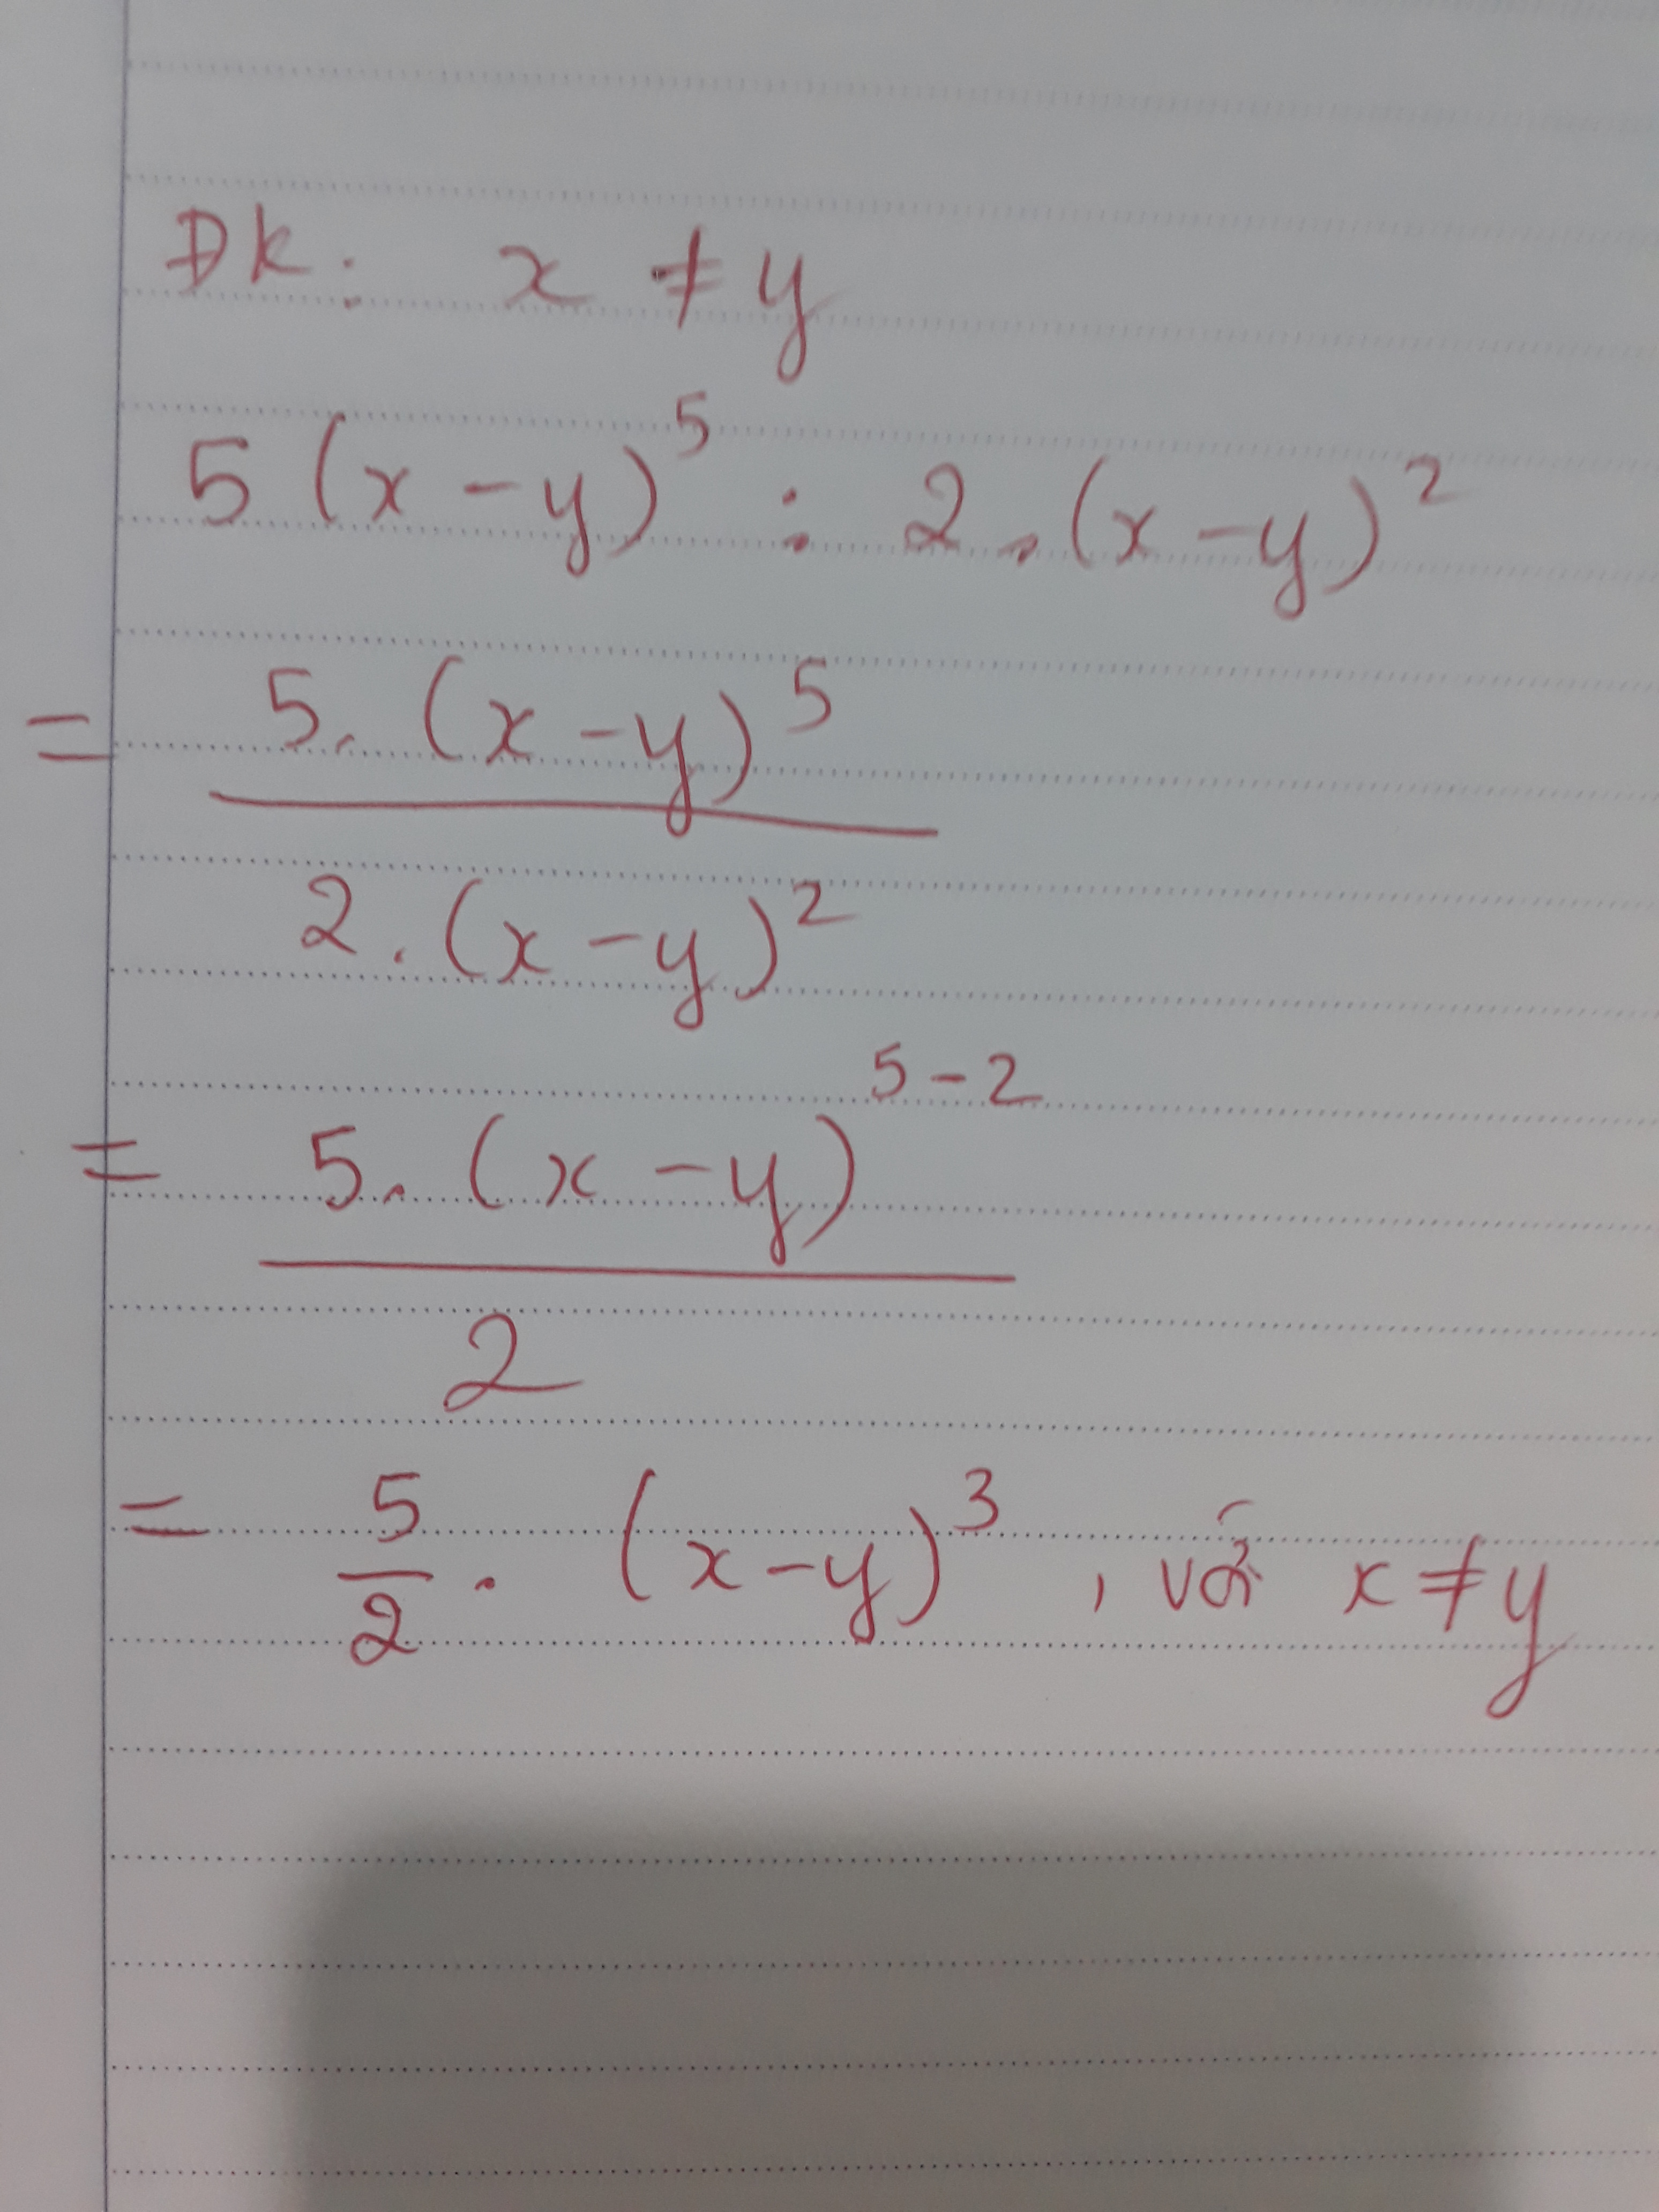 ĐK: x ≠ y
5 (x - y)⁵ : 2 . (x - y)²
= 5. (x - y)⁵
2 . (x - y)²
= 5. (x - y)⁵⁻²
2
= 5/2 . (x - y)³ , với x ≠ y